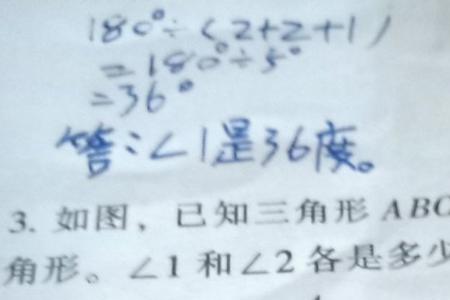 180°÷(2+2+1)
=180°÷5°
=36°
答:∠1是36度。
3. 如图，已知三角形 ABC
角形。∠1 和∠2 各是多少